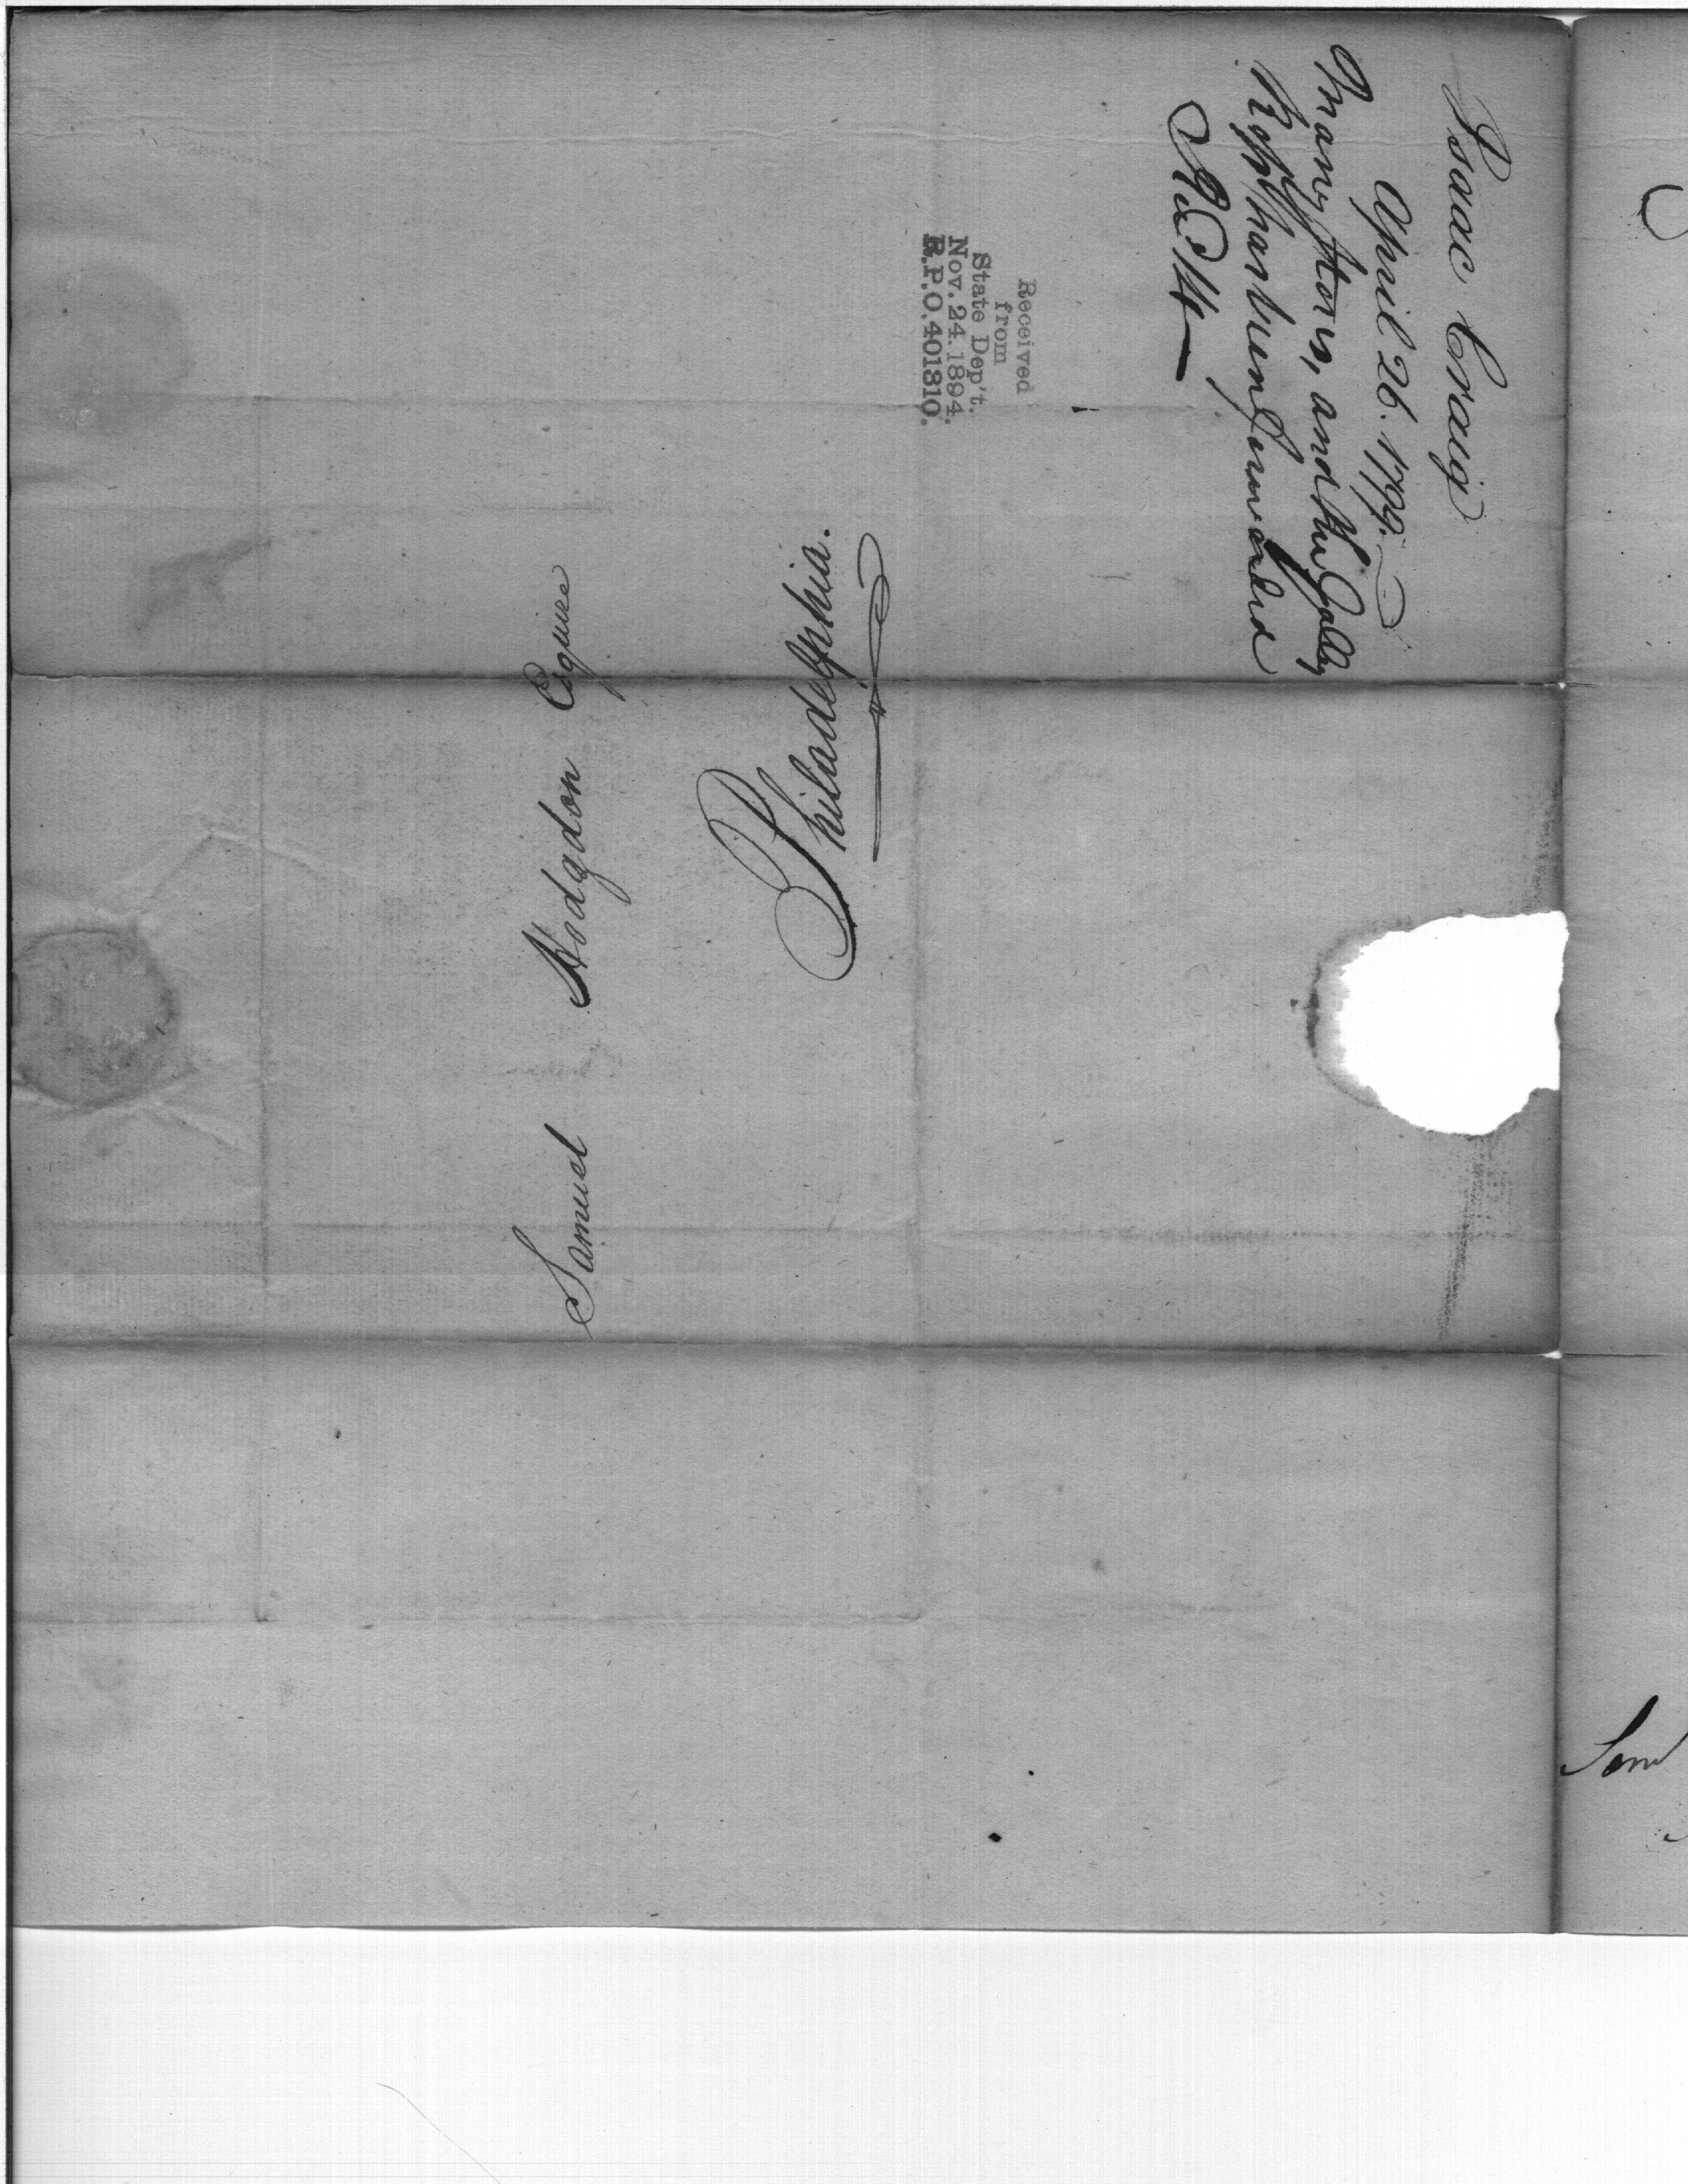 Isaac Craig
April 26. 1799.
Many Stores, and the Galley
Ross has been forwarded
Received
from
State Dep't.
Nov. 24. 1894.
R.P.O. 401310.
Samuel Hodgdon Esquire
Philadelphia.